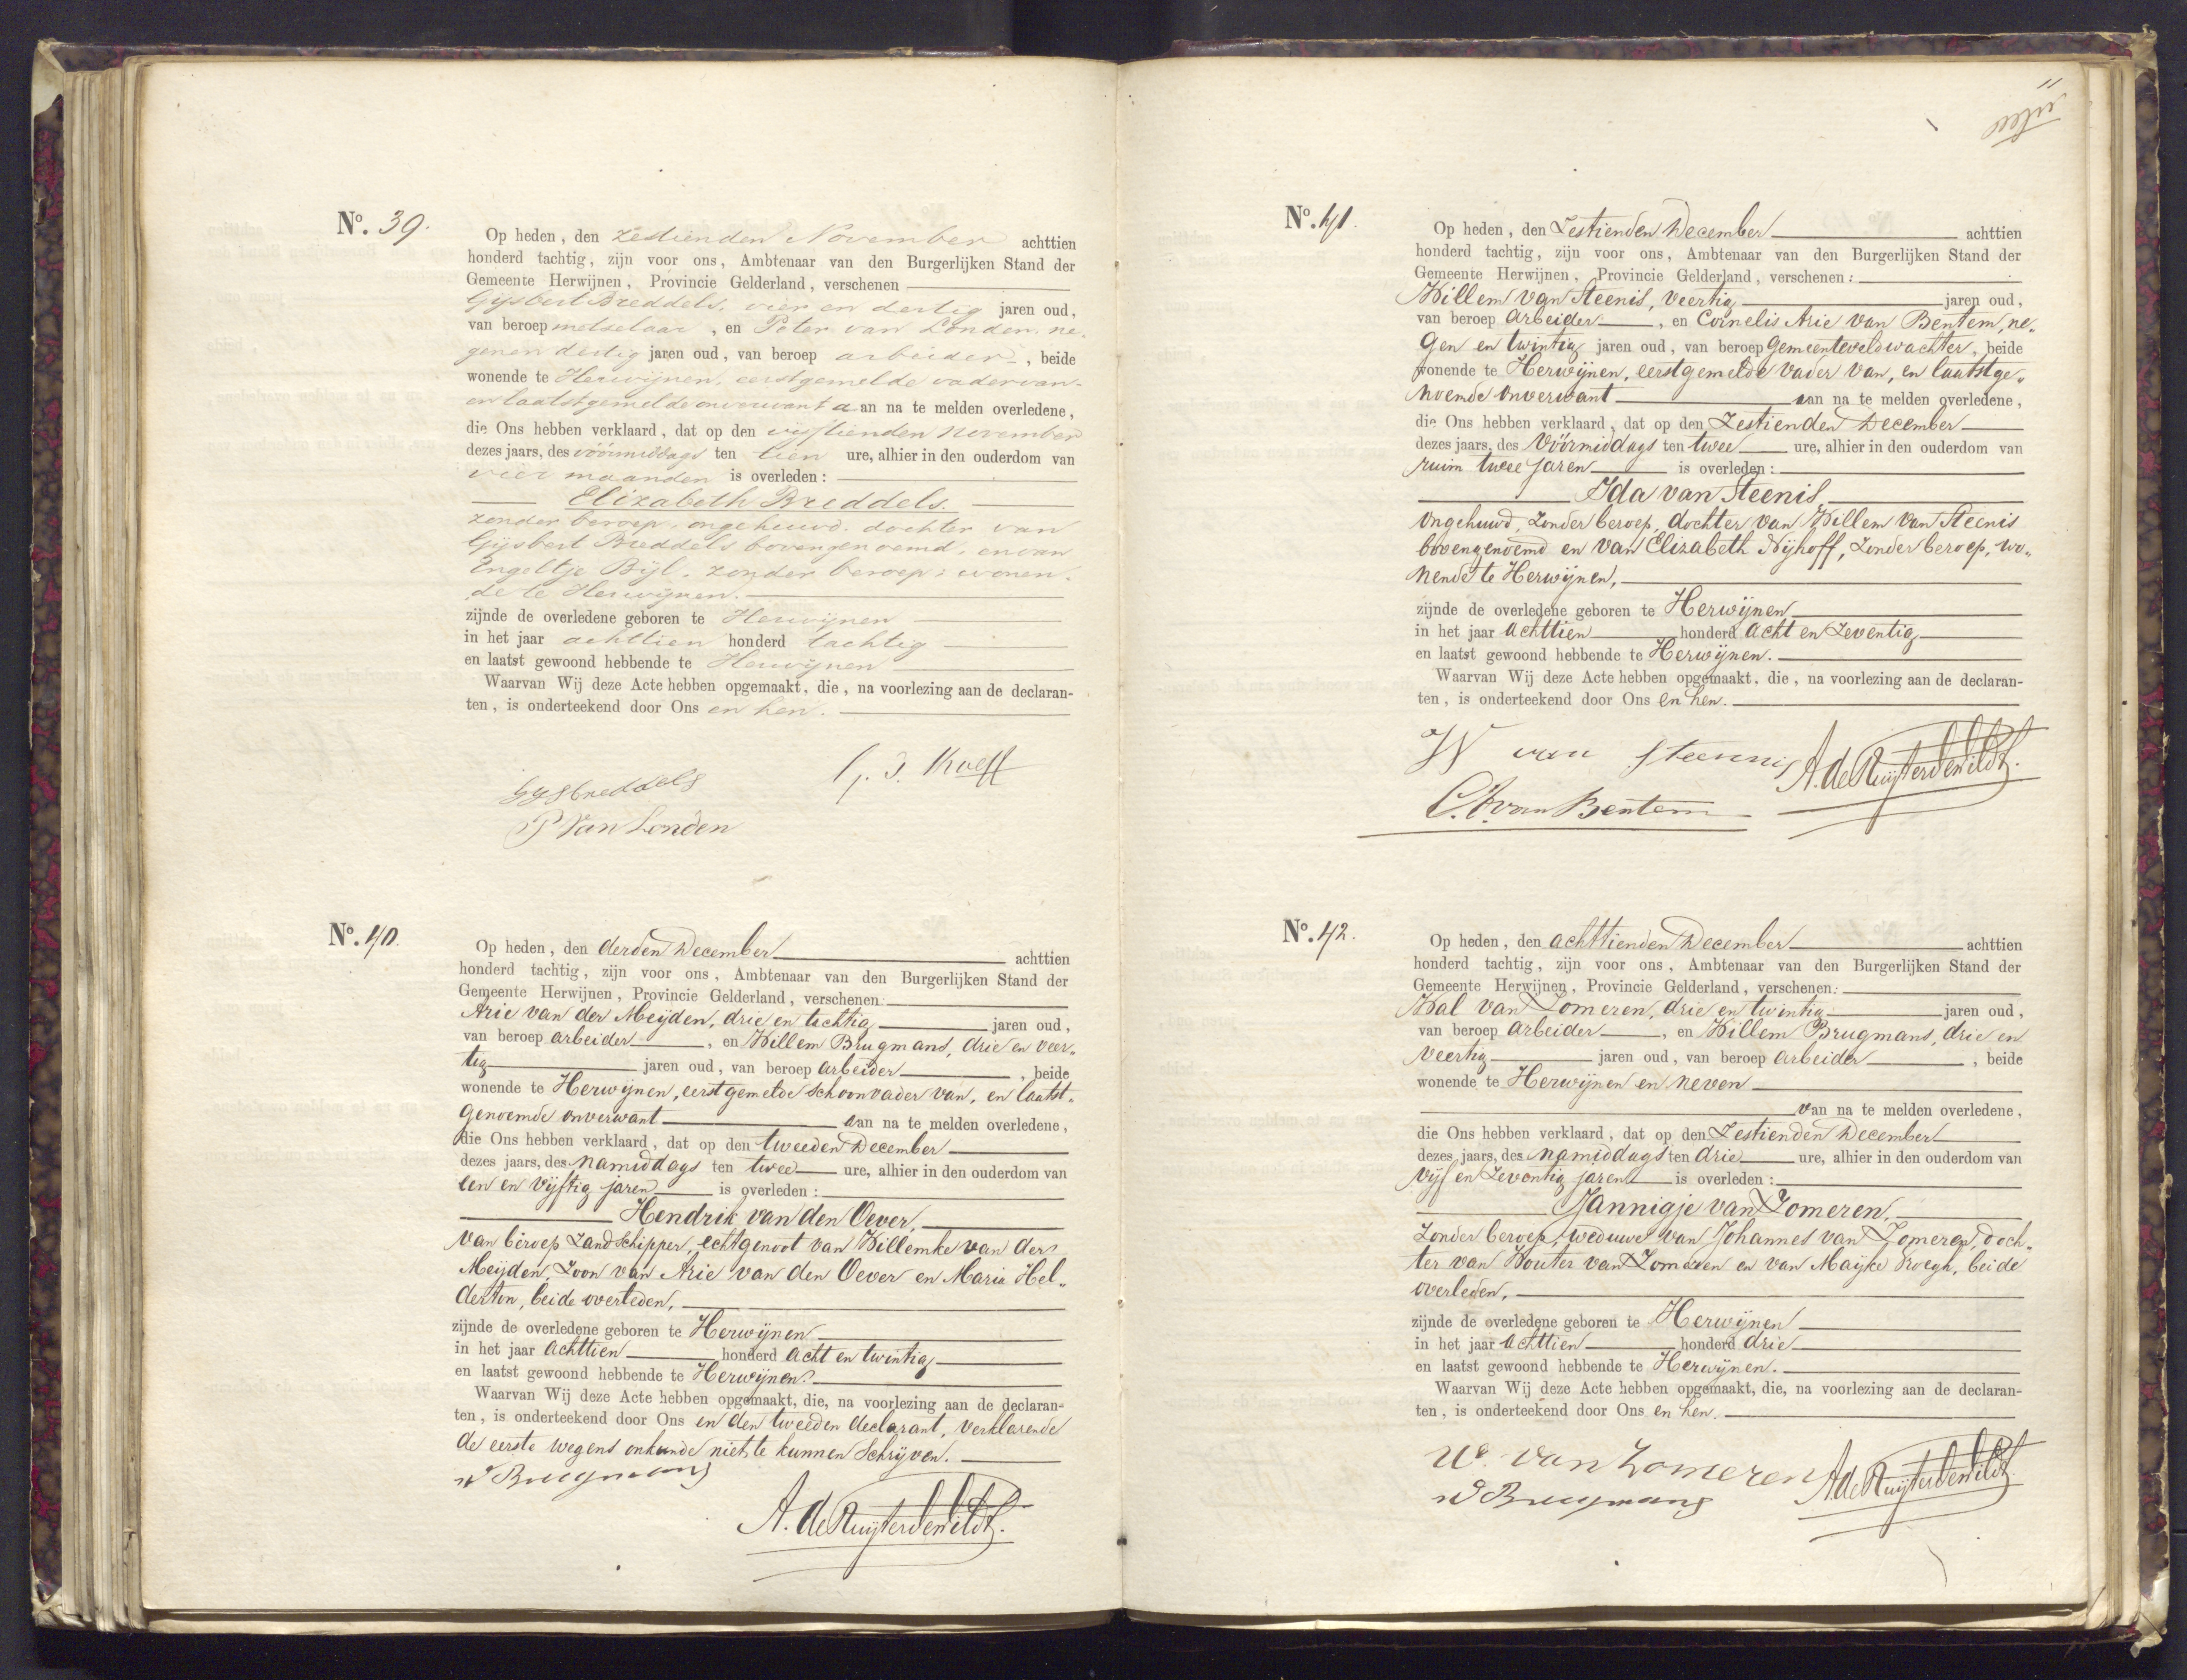 11
elfde
No. 39.
Op heden, den zestienden November achttien
honderd tachtig, zijn voor ons, Ambtenaar van den Burgerlijken Stand der
Gemeente Herwijnen, Provincie Gelderland, verschenen
Gijsbert Breddels, vier en dertig jaren oud,
van beroep metselaar, en Peter van Londen, ne-
genen dertig jaren oud, van beroep arbeider, beide
wonende te Herwijnen, eerstgemelde vader van-
en laatstgemelde onverwant aan na te melden overledene,
die Ons hebben verklaard, dat op den vijftienden November
dezes jaars, des vóórmiddags ten tien ure, alhier in den ouderdom van
vier maanden is overleden:
Elizabeth Breddels.
zonder beroep, ongehuwd, dochter van
Gijsbert Breddels bovengenoemd, en van
Engeltje Bijl, zonder beroep, wonen-
de te Herwijnen.
zijnde de overledene geboren te Herwijnen
in het jaar achttien honderd tachtig
en laatst gewoond hebbende te Herwijnen
Waarvan Wij deze Acte hebben opgemaakt, die, na voorlezing aan de declaran-
ten, is onderteekend door Ons en hen.
Gysbreddels
P Van Londen
No. 40.
Op heden, den derden December achttien
honderd tachtig, zijn voor ons, Ambtenaar van den Burgerlijken Stand der
Gemeente Herwijnen, Provincie Gelderland, verschenen:
Arie van der Meijden, drie en tachtig jaren oud,
van beroep arbeider, en Willem Brugmans, drie en veer„
tig jaren oud, van beroep arbeider, beide
wonende te Herwijnen, eerstgemelde schoonvader van, en laatst„
genoemde onverwant aan na te melden overledene,
die Ons hebben verklaard, dat op den tweeden December
dezes jaars, des Namiddags ten twee ure, alhier in den ouderdom van
een en vijftig jaren is overleden:
Hendrik van den Oever,
van beroep Zandschipper, echtgenoot van Willemke van der
Meijden, Zoon van Arie van den Oever en Maria Hel„
derton, beide overleden,
zijnde de overledene geboren te Herwijnen
in het jaar achttien honderd acht en twintig
en laatst gewoond hebbende te Herwijnen.
Waarvan Wij deze Acte hebben opgemaakt, die, na voorlezing aan de declaran-
ten, is onderteekend door Ons en den tweeden declarant, verklarende
de eerste wegens onkunde niet te kunnen Schrijven.
W Brugmans
A. de Ruijter de Wildt.
No. 41.
Op heden, den Zestienden December achttien
honderd tachtig, zijn voor ons, Ambtenaar van den Burgerlijken Stand der
Gemeente Herwijnen, Provincie Gelderland, verschenen:
Willem van Steenis, veertig jaren oud,
van beroep arbeider, en Cornelis Arie van Bentem, ne„
gen en twintig jaren oud, van beroep gemeenteveldwachter, beide
wonende te Herwijnen, eerstgemelde vader van, en laatstge„
noemde onverwant aan na te melden overledene,
die Ons hebben verklaard, dat op den Zestienden December
dezes jaars, des Vóórmiddags ten twee ure, alhier in den ouderdom van
ruim twee jaren is overleden:
Ida van Steenis,
ongehuwd, Zonder beroep, dochter van Willem van Steenis
bovengenoemd en van Elizabeth Nijhoff, Zonder beroep, wo„
nende te Herwijnen,
zijnde de overledene geboren te Herwijnen
in het jaar achttien honderd acht en Zeventig
en laatst gewoond hebbende te Herwijnen.
Waarvan Wij deze Acte hebben opgemaakt, die, na voorlezing aan de declaran-
ten, is onderteekend door Ons en hen.
W van Steennis A. de Ruijter de Wildt.
C. A. van Bentem
No. 42.
Op heden, den achttienden December achttien
honderd tachtig, zijn voor ons, Ambtenaar van den Burgerlijken Stand der
Gemeente Herwijnen, Provincie Gelderland, verschenen:
Wal van Zomeren, drie en twintig jaren oud,
van beroep arbeider, en Willem Brugmans, drie en
veertig jaren oud, van beroep arbeider, beide
wonende te Herwijnen en neven
van na te melden overledene,
die Ons hebben verklaard, dat op den Zestienden December
dezes jaars, des Namiddags ten drie ure, alhier in den ouderdom van
vijf en Zeventig jaren is overleden:
Jannigje van Zomeren,
Zonder beroep, weduwe van Johannes van Zomeren, doch„
ter van Wouter van Zomeren en van Mayke, beide
overleden,
zijnde de overledene geboren te Herwijnen
in het jaar achttien honderd drie
en laatst gewoond hebbende te Herwijnen.
Waarvan Wij deze Acte hebben opgemaakt, die, na voorlezing aan de declaran-
ten, is onderteekend door Ons en hen.
W. van Zomeren A. de Ruijter de Wildt.
W Brugmans